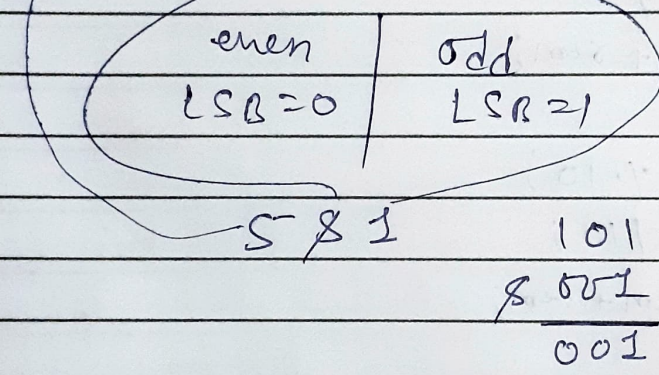 even odd
LSB=0 LSB=1
5 & 1 101
& 001
001